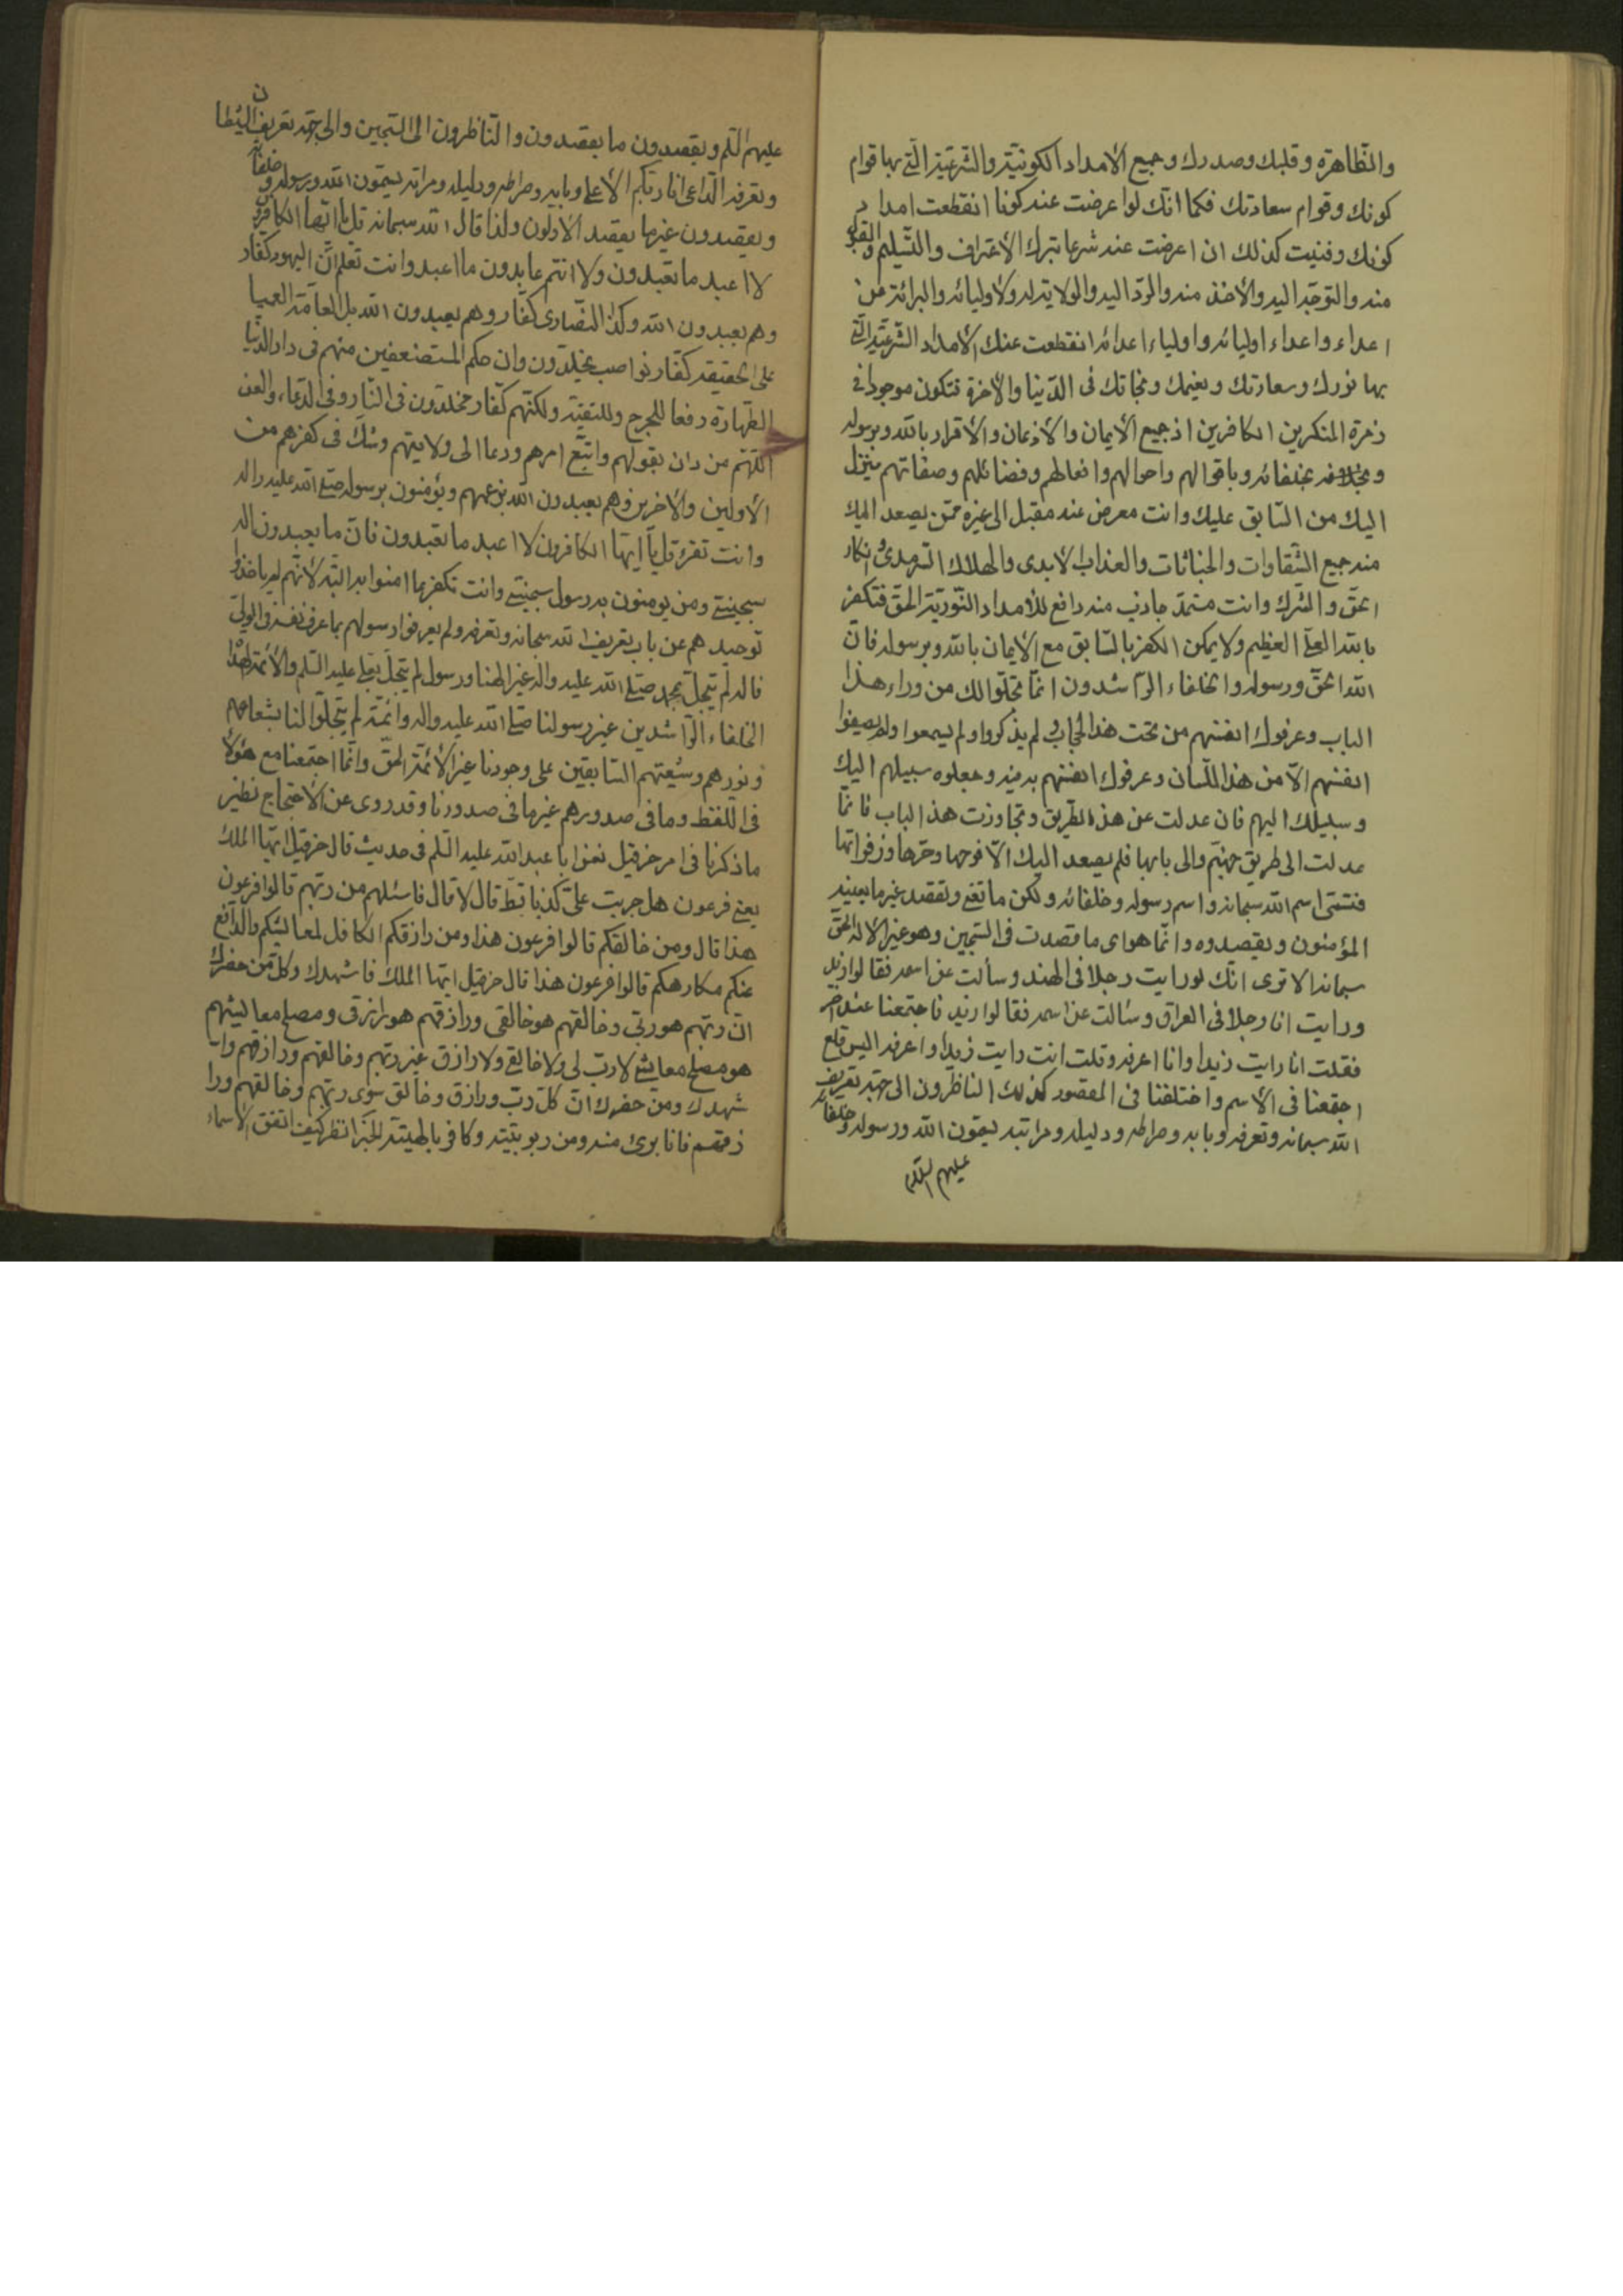 والظاهرة وقلبك وصدرك وجميع الأمداد الكونيّة والشرعيّة الّتي بها قوام
كونك وقوام سعادتك فكما انّك لو اعرضت عنه كونا انقطعت امداد
كونك وفنيت كذلك ان اعرضت عنه شرعا بترك الأعتراف والتّسليم والقبول
منه والتوجّه اليه والأخذ منه والردّ اليه والولاية له ولأوليائه والبرائة من
اعداءه واعداء اوليائه واولياء اعدائه انقطعت عنك الأمداد الشّرعيّة الّتي
بها نورك وسعادتك ونعيمك ونجاتك فى الدّنيا والأخرة فتكون موجودا فى
زمرة المنكرين الكافرين اذ جميع الأيمان والأذعان والأقرار بالله وبرسوله
وبخلفائه وباقوالهم واحوالهم وافعالهم وفضائلهم وصفاتهم ينزل
اليك من السّابق عليك وانت معرض عنه مقبل الى غيره ممّن يصعد اليك
منه جميع الشّقاوات والخباثات والعذاب الأبدى والهلاك السّرمدى وانكار
الحقّ والشرك وانت مستمدّ جاذب منه دافع للأمداد النّوريّة الحقّة فتكفر
بالله العلىّ العظيم ولا يمكن الكفر بالسّابق مع الأيمان بالله وبرسوله فانّ
الله الحقّ ورسوله والخلفاء الرّاشدون انّما تجلّوا لك من وراء هذا
الباب وعرفوك انفسهم من تحت هذا الحجاب لم يذكروا ولم يسمعوا ولم يصفوا
انفسهم الّا من هذا اللّسان وعرفوك انفسهم به منه وجعلوه سبيلهم اليك
وسبيلك اليهم فان عدلت عن هذه الطريق وتجاوزت هذا الباب فانّما
عدلت الى طريق جهنّم والى بابها فلم يصعد اليك الّا فوحها وحرّها وزفراتها
فتسمّى اسم الله سبحانه واسم رسوله وخلفائه ولكن ما تعنى وتقصد غير ما يعنيه
المؤمنون ويقصدوه وانّما هواى ما قصدت فى السّجين وهو غير الأله الحقّ
سبحانه الا ترى انّك لو رايت رجلا فى الهند وسألت عن اسمه فقالوا زيد
ورايت انا رجلا فى العراق وسئالت عن اسمه فقالوا زيد فاجتمعنا عند اخر
فقلت انا رايت زيدا وانا اعرفه وقلت انت رايت زيدا واعرفه اليس قد
اجتمعنا فى الأسم واختلفنا فى المقصود كذلك الناظرون الى جهة تعريف
الله سبحانه وتعرفه وبابه وصراطه ودليله ومراتبه يسمّون الله ورسوله وخلفائه
عليهم السّلام
عليهم السّلم ويقصدون ما يقصدون والنّاظرون الى السّجين والى جهة تعريف الشيطان
وتعرفه الدّاعى انا ربّكم الأعلى وبابه وصراطه ودليله ومراتبه يسمّون الله وبرسوله وخلفائه
ويقصدون غيرما يقصد الأوّلون ولذا قال الله سبحانه قل يا ايّها الكافرون
لا اعبد ما تعبدون ولا انتم عابدون ما اعبد وانت تعلم انّ اليهود كفّار
وهم يعبدون الله وكذا النّصارى كفّار وهم يعبدون الله بل العامّة العميا
على الحقيقة كفّار نواصب مخلّدون وان حكم المستضعفين منهم فى دار الدّنيا
الطّهارة دفعا للحرج وللتقيّة ولكنّهم كفّار مخلّدون فى النّار وفى الدّعاء والعن
اللّهمّ من دان بقولهم واتّبع امرهم ودعا الى ولايتهم وشكّ فى كفرهم من
الأولين والأخرين فهم يعبدون الله بزعمهم ويؤمنون برسوله صلّى الله عليه واله
وانت تقرء قل يا ايّها الكافرون لا اعبد ما تعبدون فانّ ما يعبدون اله
سجينىّ ومن يومنون به رسول سجينىّ وانت تكفر بما امنوا به البتّه لأنّهم لم ياخذوا
توحيدهم عن باب تعريف الله سبحانه وتعرفه ولم يعرفوا رسولهم بما عرف نفسه فى الولىّ
فاله لم يتجلّ بمحمد صلّى الله عليه واله غير الهنا ورسول لم يتجلّ بعلى عليه السّلم والأئمّة
الخلفاء الرّاشدين غير رسولنا صلّى الله عليه واله وائمّة لم يتجلّوا لنا بشعاعهم
ونورهم وشيعتهم السّابقين على وجودنا غير الأئمّة الحقّ وانّما اجتمعنا مع هؤلاء
فى اللّفظ وما فى صدورهم غير ما فى صدورنا وقد روى عن الأحتجاج نظير
ما ذكرنا فى امر حزقيل نعن ابا عبد الله عليه السّلم فى حديث قال حزقيل ايّها الملك
يعنى فرعون هل جربت علىّ كذبا قطّ قال لا قال فاسئلهم من ربّهم قالوا فرعون
هذا قال ومن خالقكم قالوا فرعون هذا ومن رازقكم الكافل لمعائشكم والدّافع
عنكم مكارهكم قالوا فرعون هذا قال حزقيل ايّها الملك فاشهدك وكلّ من حضرك
انّ ربّهم هو ربّى وخالقهم هو خالقى ورازقهم هو رازقى ومصلح معايشهم
هو مصلح معايشى لا ربّ لى ولا خالق ولا رازق غير ربّهم وخالقهم ورازقهم وا
شهدك ومن حضرك انّ كلّ ربّ ورازق وخالق سوى ربّهم وخالقهم ورا
زقهم فانا برئ منه ومن ربوبيّته وكافر بالهيّته الخبر انظر كيف اتفق الأسماء